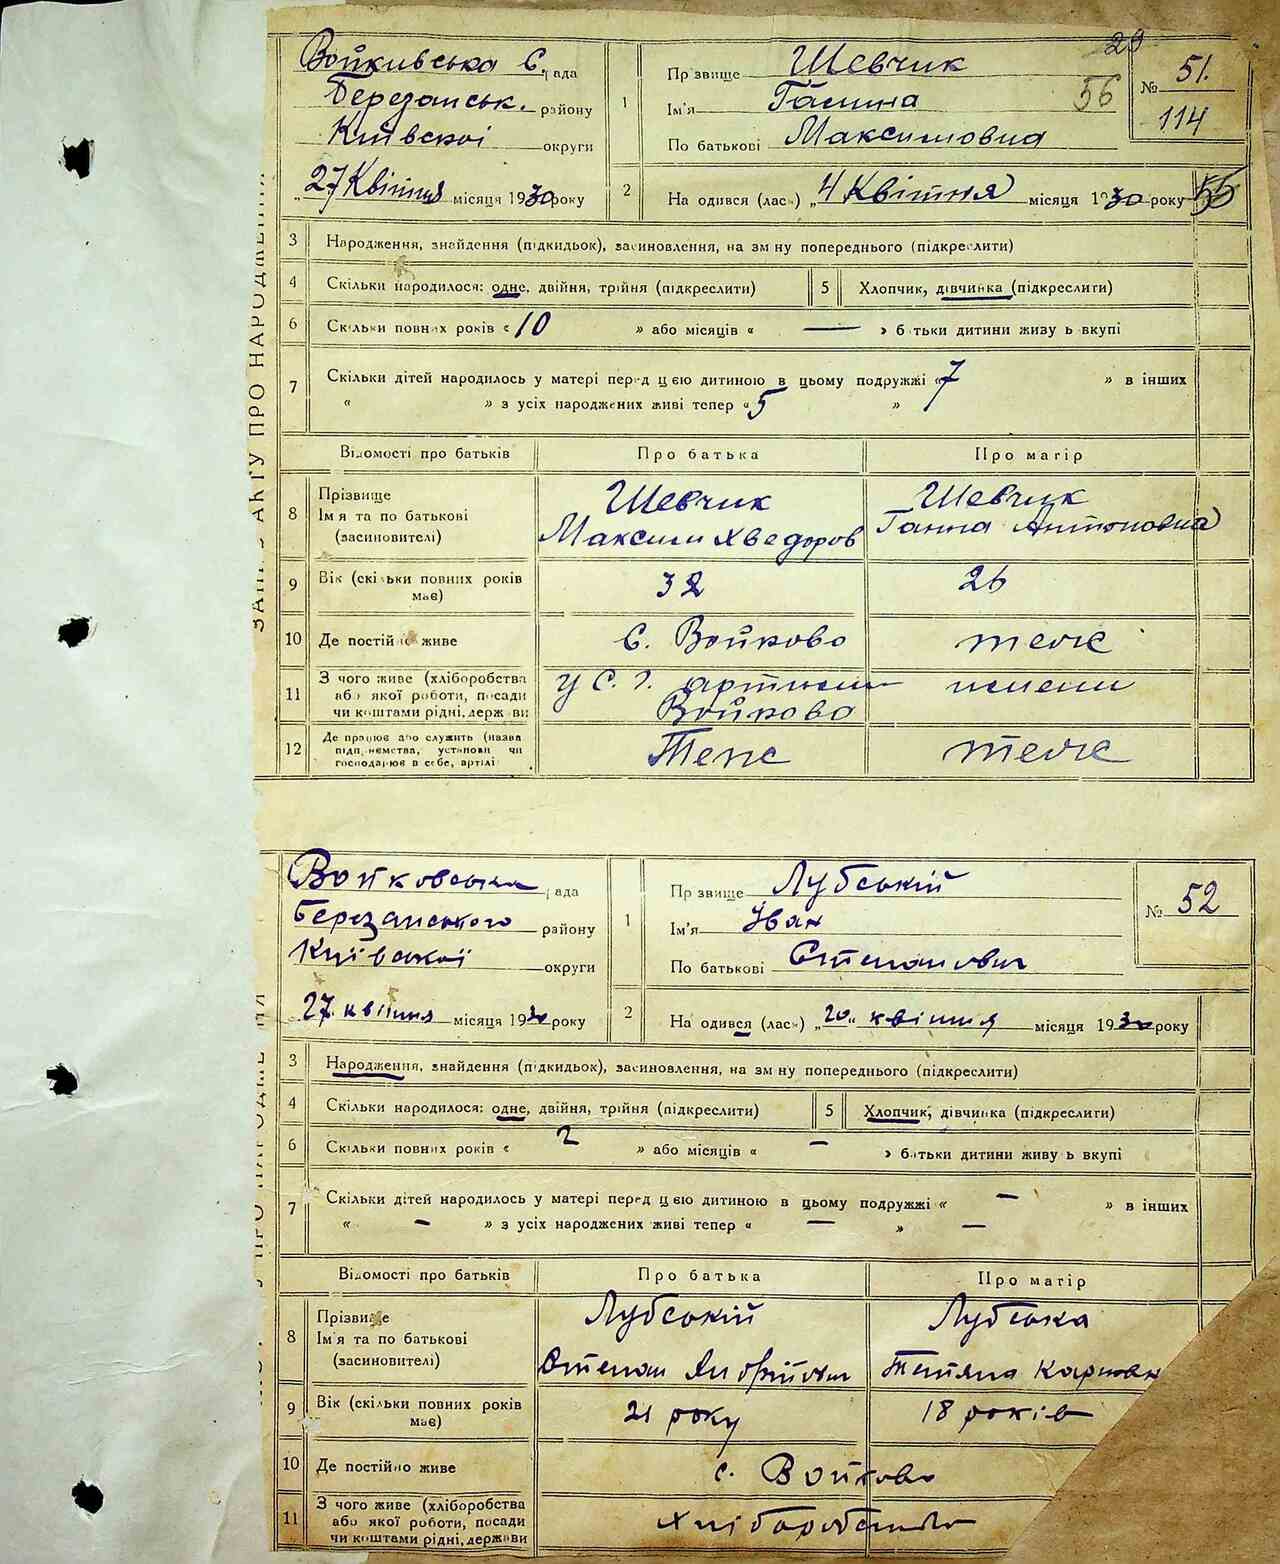 29
Войкивська С. рада
Березанськ. району
Київскої округи
Прізвище Шевчик
1 Ім'я Галина 56
По батькові Максимовна
№ 51.
114
„27 Квітня місяця 1930 року
2 На одився (лась) „4 Квітня місяця 1930 року 55
3 Народження, знайдення (підкидьок), засиновлення, на зм ну попереднього (підкреслити)
4 Скільки народилося: одне, двійня, трійня (підкреслити) 5 Хлопчик, дівчинка (підкреслити)
6 Скільки повних років « 10 » або місяців « — » батьки дитини живу ь вкупі
7 Скільки дітей народилось у матері перед цією дитиною в цьому подружжі « 7 » в інших
« » з усіх народжених живі тепер « 5 »
Відомості про батьків Про батька Про матір
8 Прізвище
Ім'я та по батькові
(засиновителі)
Шевчик
Максим Хведоров
Шевчик
Ганна Антоновна
9 Вік (скільки повних років
має)
32 26
10 Де постійно живе с. Войково теж
11 З чого живе (хліборобства
або якої роботи, посади
чи коштами рідні, держави
У С. Г. артили имени
Войкова
12 Де працює або служить (назва
підприємства, установи чи
господарює в себе, артілі
Теж теж
ЗАПИС АКТУ ПРО НАРОДЖЕННЯ
Войковська рада
Березанського району
Київської округи
Прізвище Лубський
1 Ім'я Іван
По батькові Степанович
№ 52
„27. квітня місяця 1930 року
2 На одився (лась) „20„ квітня місяця 1930 року
3 Народження, знайдення (підкидьок), засиновлення, на зм ну попереднього (підкреслити)
4 Скільки народилося: одне, двійня, трійня (підкреслити) 5 Хлопчик, дівчинка (підкреслити)
6 Скільки повних років « 2 » або місяців « — » батьки дитини живу ь вкупі
7 Скільки дітей народилось у матері перед цією дитиною в цьому подружжі « — » в інших
« — » з усіх народжених живі тепер « — » —
Відомості про батьків Про батька Про матір
8 Прізвище
Ім'я та по батькові
(засиновителі)
Лубський
Степан
Лубська
Тетяна Карповн
9 Вік (скільки повних років
має)
21 року 18 років
10 Де постійно живе с. Войково
11 З чого живе (хліборобства
або якої роботи, посади
чи коштами рідні, держави
хліборобство